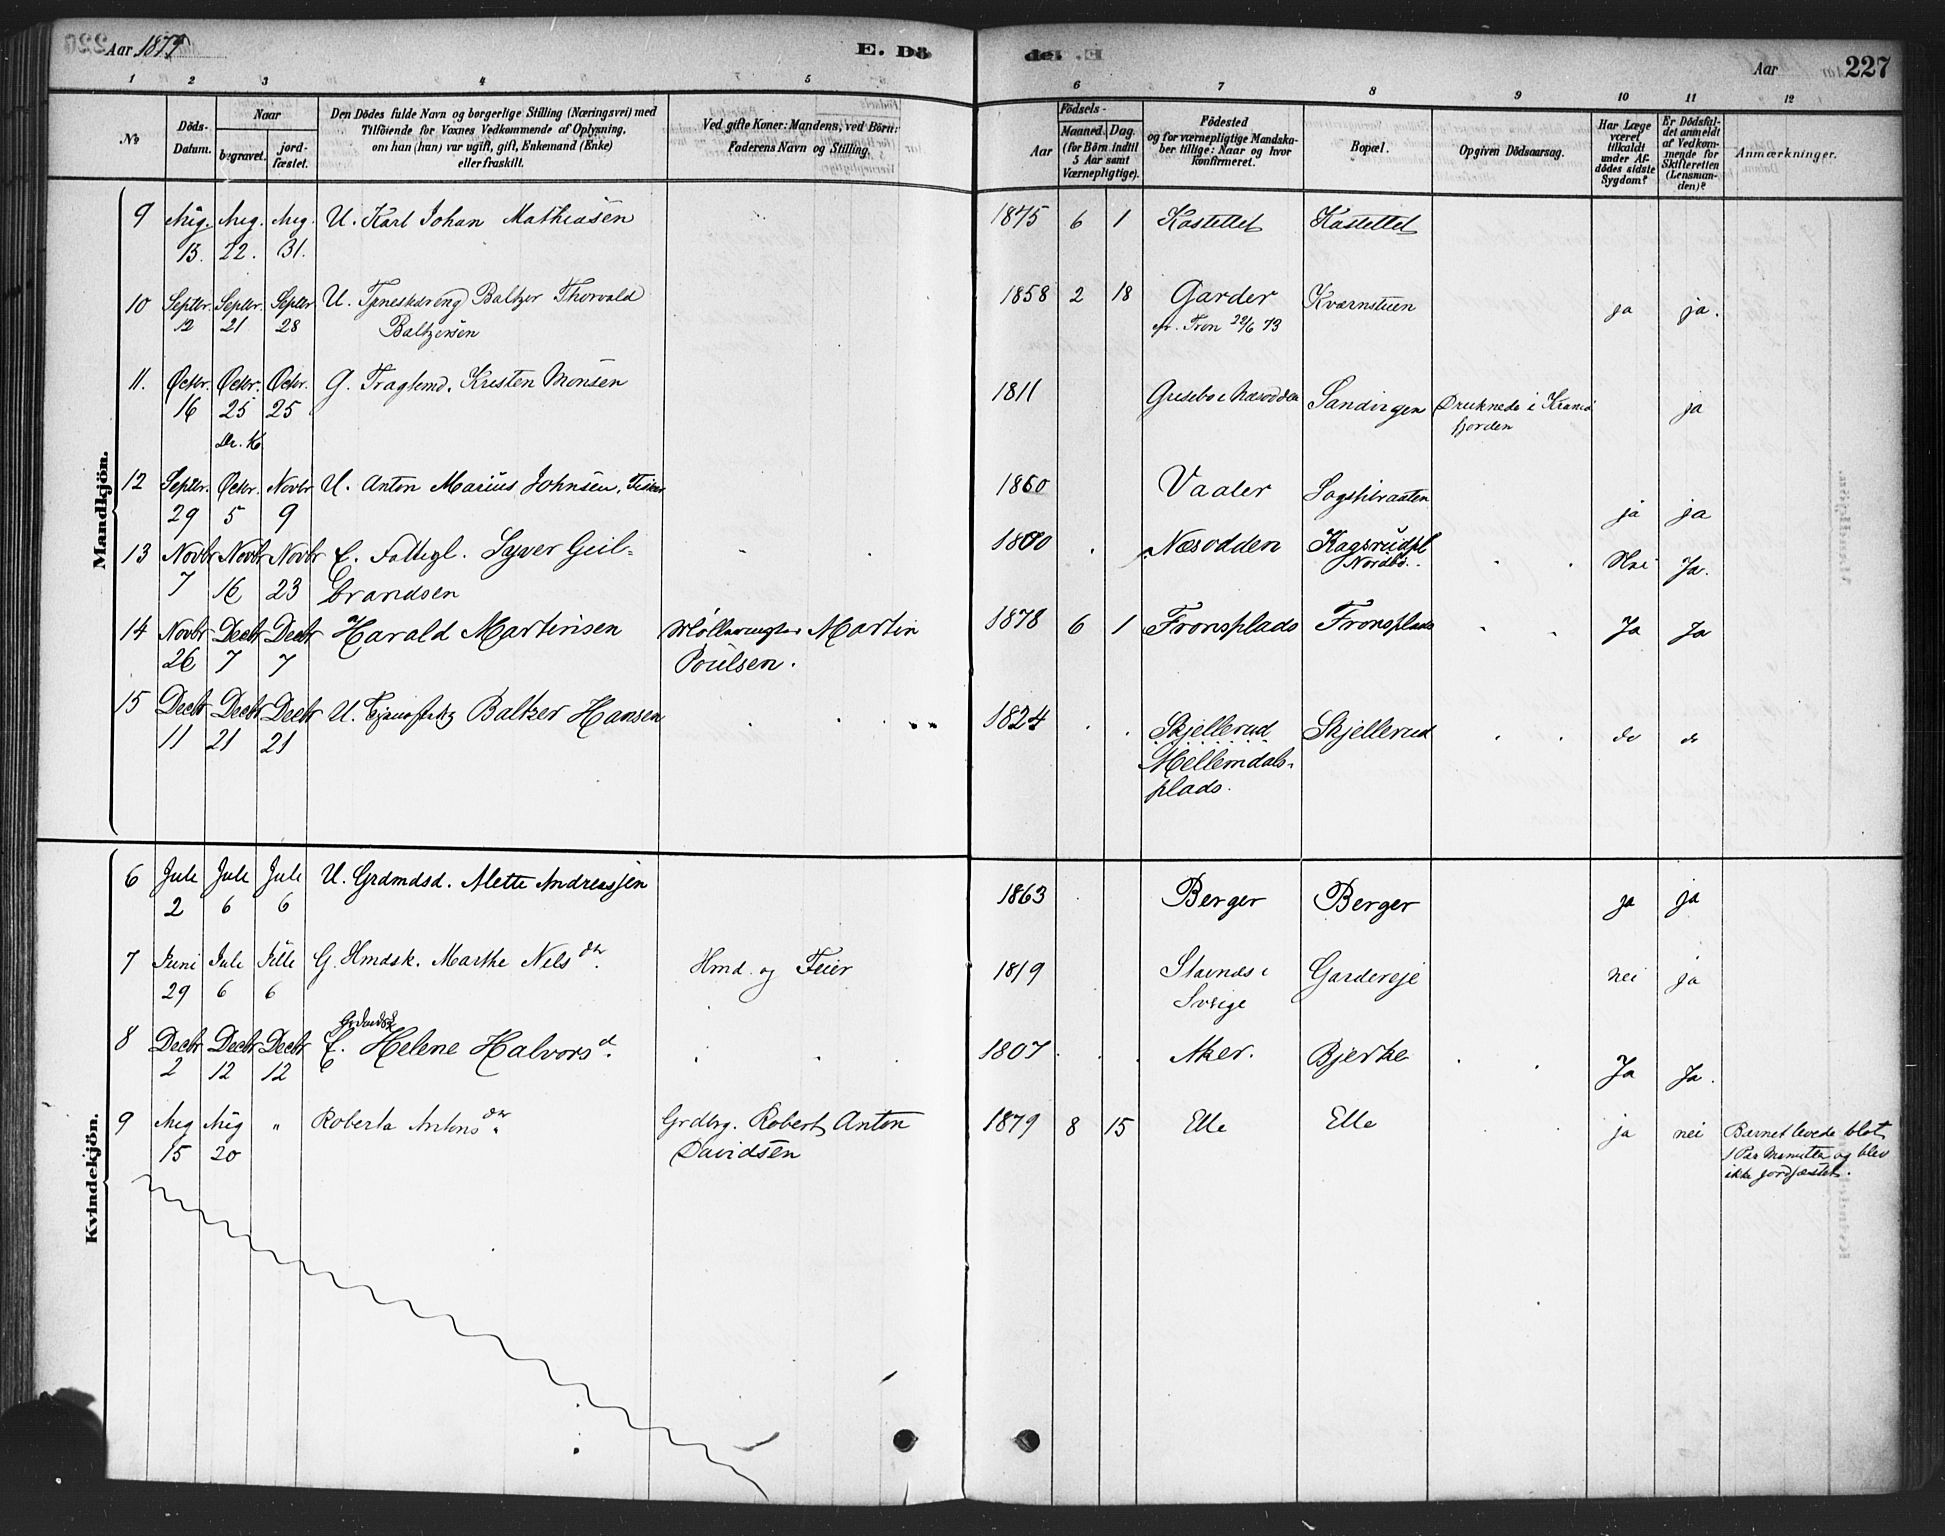 Aar 1879
E. Dö
de. E.
Aar
227
1 2 3 4 5 6 7 8 9 10 11 12
No
Döds-Datum.
Naar
begravet.
jord-fæstet.
Den Dödes fulde Navn og borgerlige Stilling (Næringsvei) med
Tilföiende for Voxnes Vedkommende af Oplysning,
om han (hun) var ugift, gift, Enkemand (Enke)
eller fraskilt.
Ved gifte Koner: Mandens, ved Börn:
Faderens Navn og Stilling.
Födsels-
Aar
Maaned. Dag.
(for Börn indtil
5 Aar samt
Værnepligtige).
Födested
og for værnepligtige Mandska-
ber tillige: Naar og hvor
konfirmeret.
Bopæl.
Opgiven Dödsaarsag.
Har Læge
været
tilkaldt
under Af-
dödes sidste
Sygdom?
Er Dödsfal-
det anmeldt
af Vedkom-
mende for
Skifteretten
(Lensman-
den)?
Anmærkninger.
Mandkjön.
9 Aug. 13. Aug. 22. Aug. 31. U. Karl Johan Mathiasen 1875 6 1 Kastellet Kastellet
10 Septbr. 12 Septbr. 21 Septbr 28 U. Tjenestdreng Baltzer Thorvald
Baltzersen 1858 2 18 Garder Kværnstuen ja ja.
fr. Fron 29/6 73
11. Octbr. 16 Octbr. 25 Octbr. 25 G. Kristen Monsen 1811 Næsodden Druknede i
fjorden ja
12 Septbr. 29 Octbr. 5 Novbr 9 U. Anton Marius Johnsen, 1860 Vaaler ja ja
13 Novbr 7 Novbr 16 Novbr 23 E. Fattigl. Syver Gul-
brandsen 1800 Næsodden Nei Ja.
14 Novbr 26 Decbr 7 Decbr 7 Harald Martinisen Martin
Poulsen. 1878 6 1 Fronsplads Fronsplads Ja Ja
15 Decbr 11 Decbr 21 Decbr 21 U. Baltzer Hansen 1824 Skjellerud Skjellerud do do
Mellemdals-
plads.
Kvindekjön.
6 Juli 2 Juli 6 Juli 6 U. Grdmdsd. Alette Andreasjen 1863 Berger Berger ja ja
7 Juni 29 Juli 6 Julli 6 G. Hmdsk. Marthe Nels dtr. Hmd. og Feier 1819 i
Sverige Gardereje nei ja
8 Decbr 2 Decbr 12 Decbr 12 E. Helene Halvors d. 1807 Aker. Bjerke Ja Ja.
9 Aug 15 Aug 20 " Roberta Antons dtr. Grdbrg. Robert Anton
Davidsen 1879 8 15 Elle Elle ja nei Barnet levede blot
1 Par Minutter og blev
ikke jordfæstet.